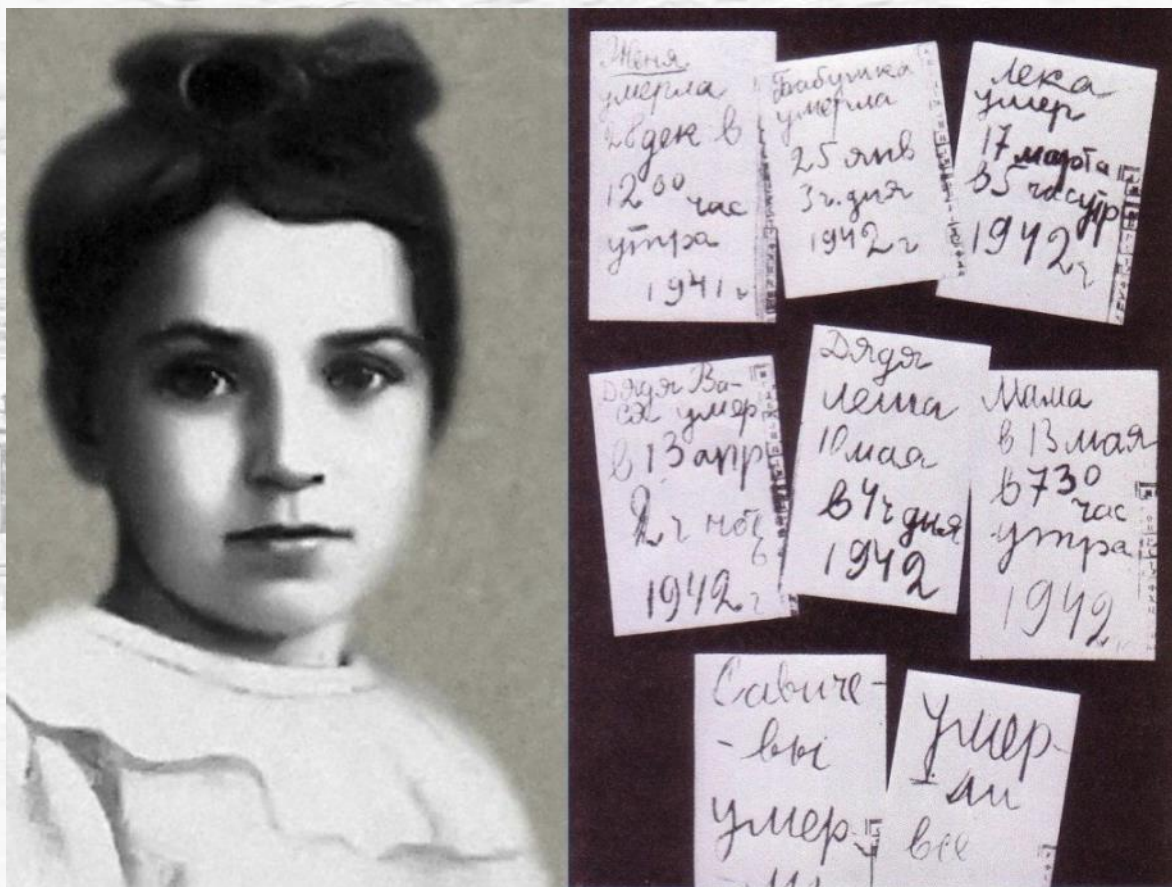 Женя
умерла
28 дек в
12 00 час
утра
1941 г
Бабушка
умерла
25 янв
3 ч. дня
1942 г
Лека
умер
17 марта
в 5 час утр
1942 г
Дядя Ва-
ся умер
в 13 апр
2 ч ночь
1942 г
Дядя
Леша
10 мая
в 4 ч дня
1942
Мама
в 13 мая
в 7 30 час
утра
1942
Савиче-
-вы
умер-
ли
Умер-
ли
все